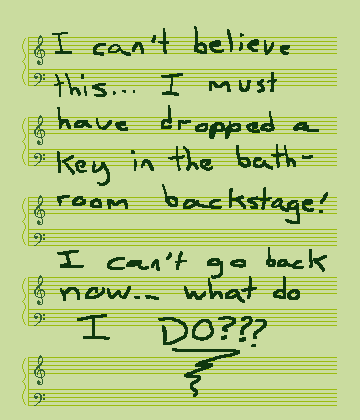 I can't believe
this... I must
have dropped a
key in the bath-
room backstage!
I can't go back
now... what do
I DO???